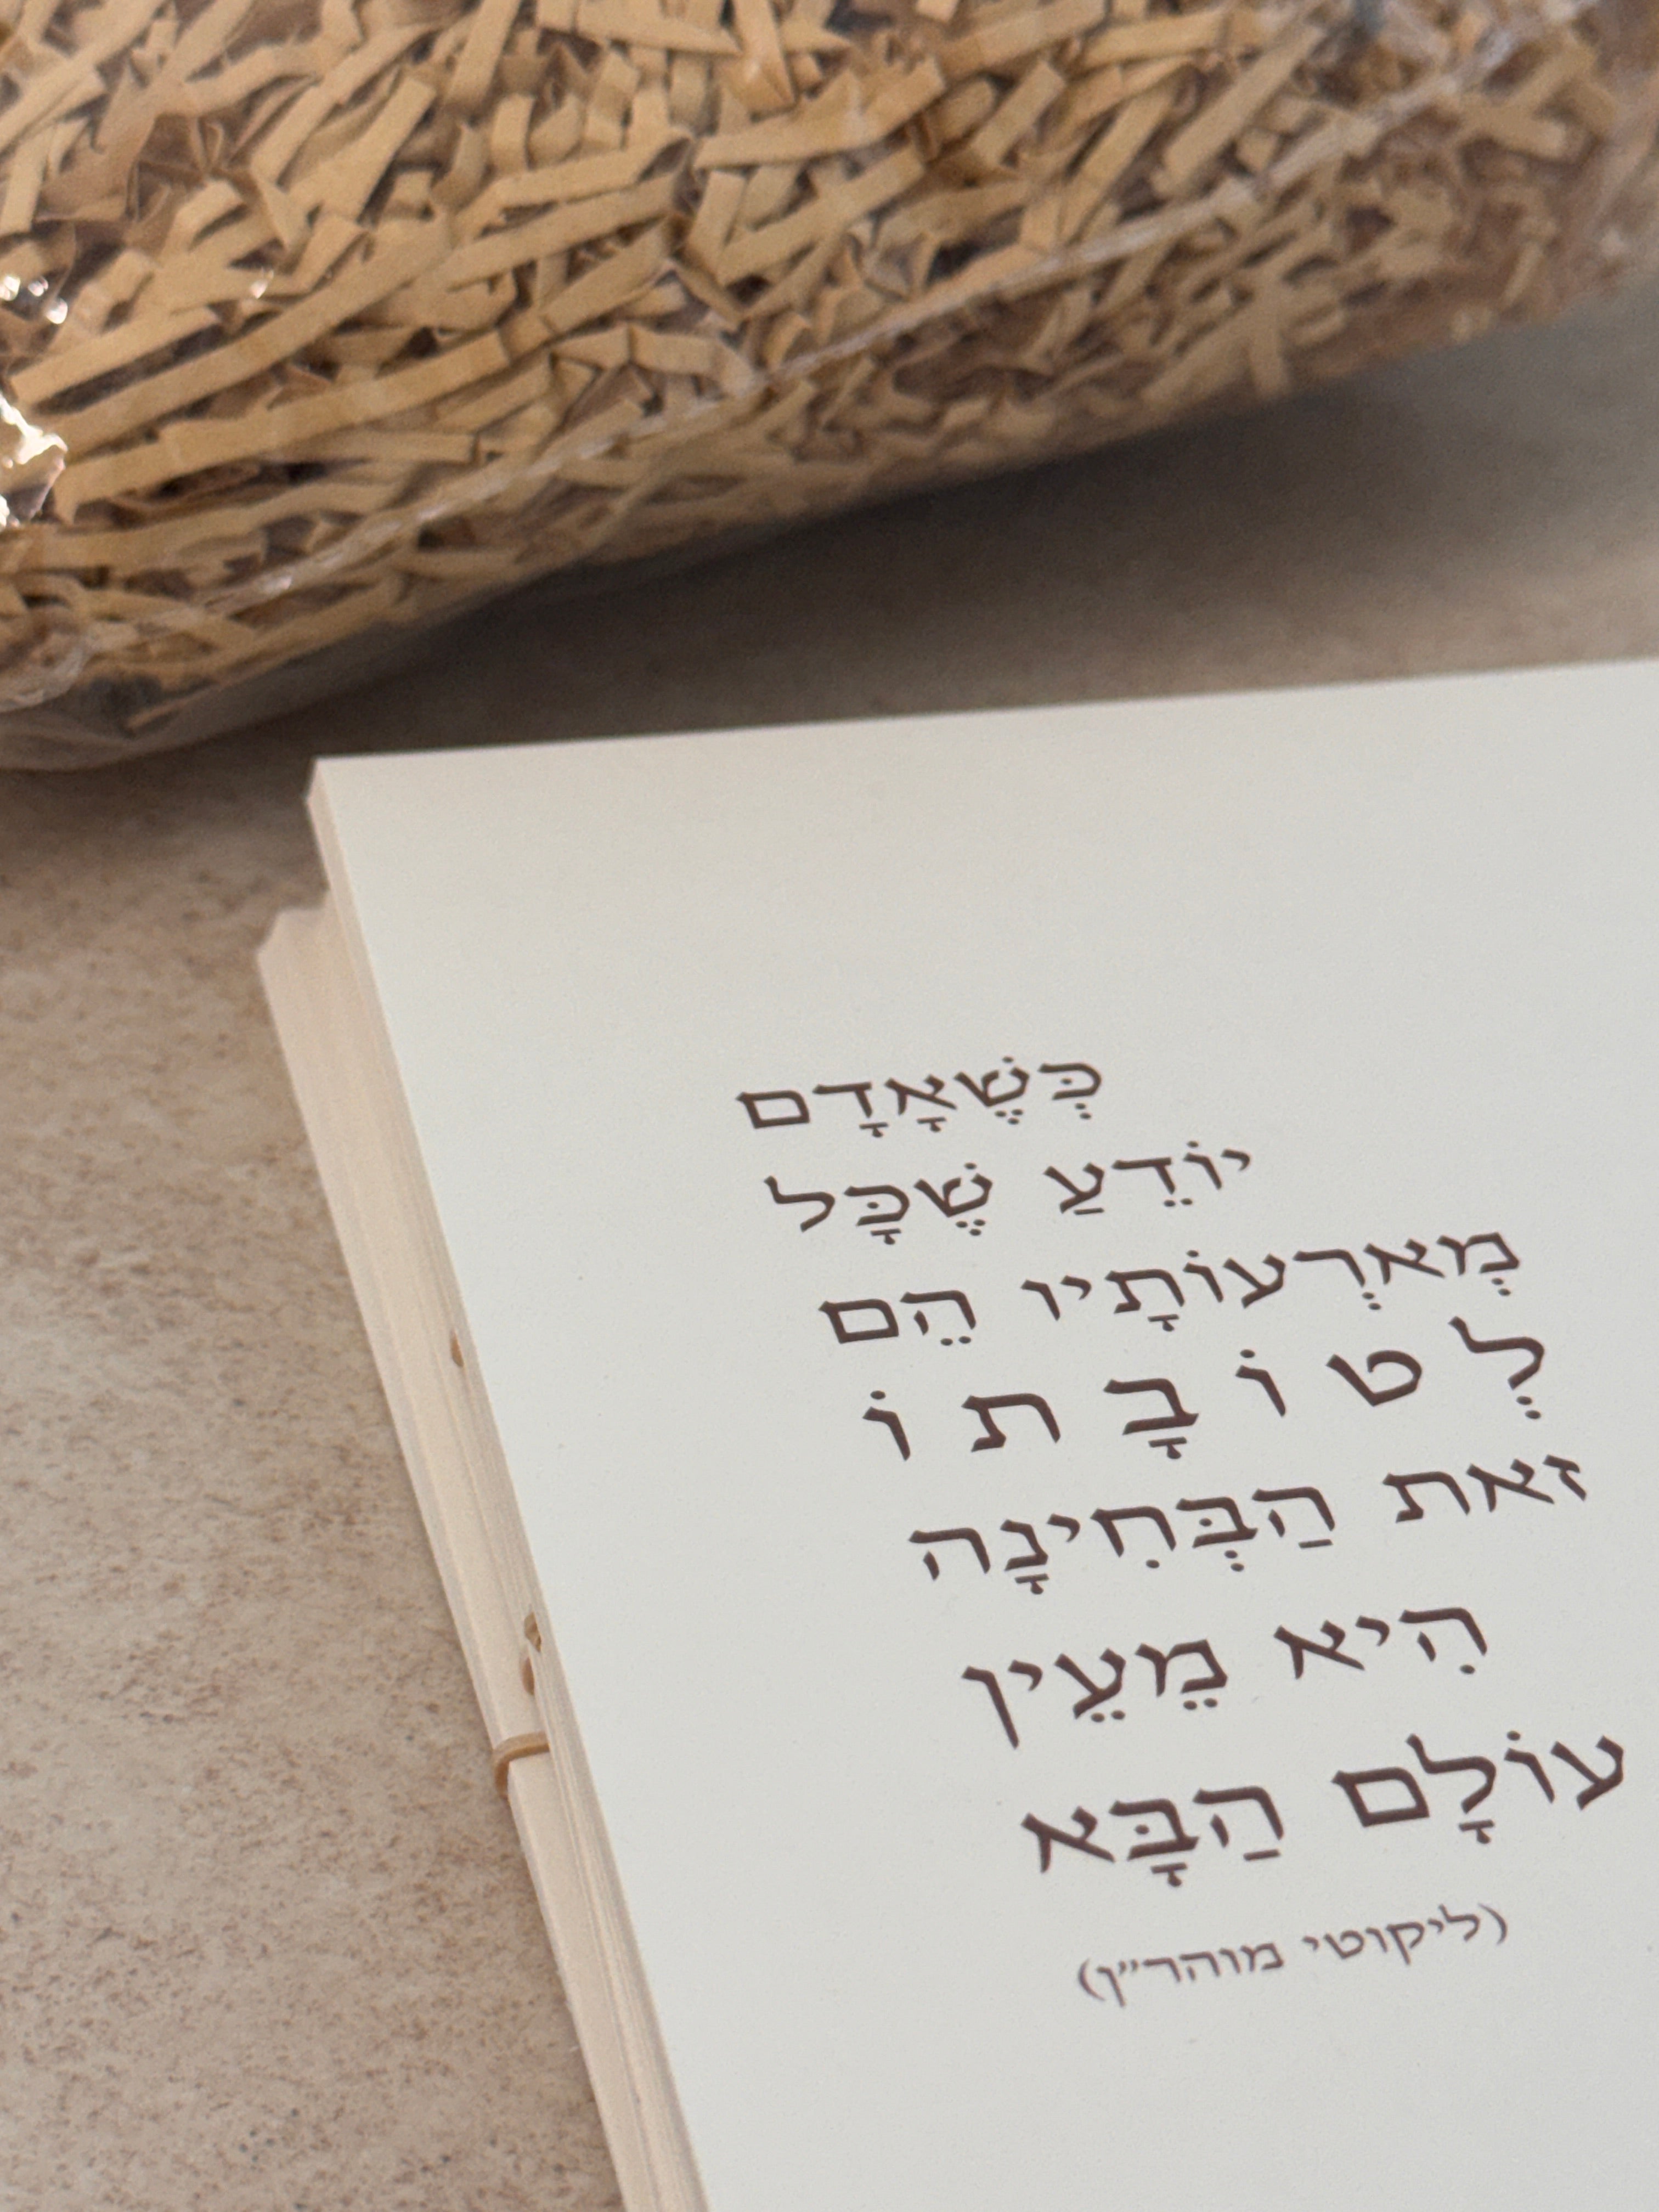 כְּשֶׁאָדָם
יוֹדֵעַ שֶׁכָּל
מְאֹרְעוֹתָיו הֵם
לְ ט וֹ בָ ת וֹ
זֹאת הַבְּחִינָה
הִיא מֵעֵין
עוֹלָם הַבָּא
(ליקוטי מוהר״ן)